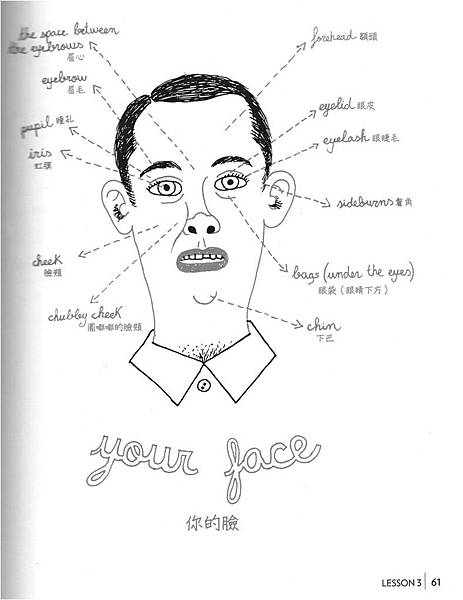 the space between
the eyebrows
眉心
eyebrow
眉毛
pupil 瞳孔
iris
虹膜
cheek
臉頰
chubby cheek
圓嘟嘟的臉頰
forehead 額頭
eyelid 眼皮
eyelash 眼睫毛
sideburns 鬢角
bags (under the eyes)
眼袋（眼睛下方）
chin
下巴
your face
你的臉
LESSON 3 61